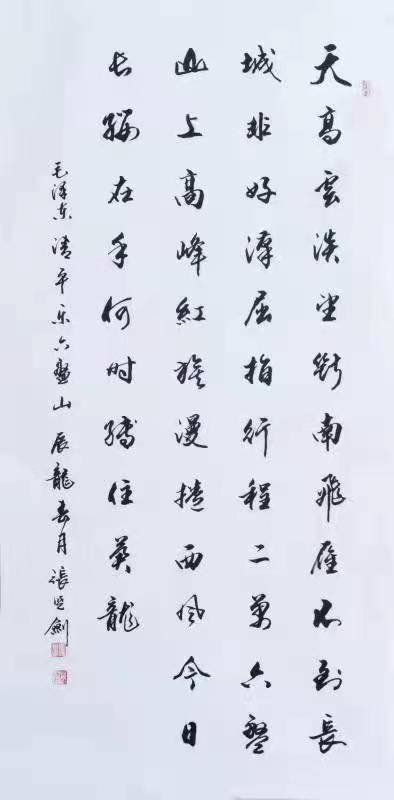 天高雲淡望斷南飛雁不到長
城非好漢屈指行程二萬六盤
山上高峰紅旗漫捲西風今日
长纓在手何时縛住蒼龍
毛泽东清平乐六盤山辰龍春月張劍